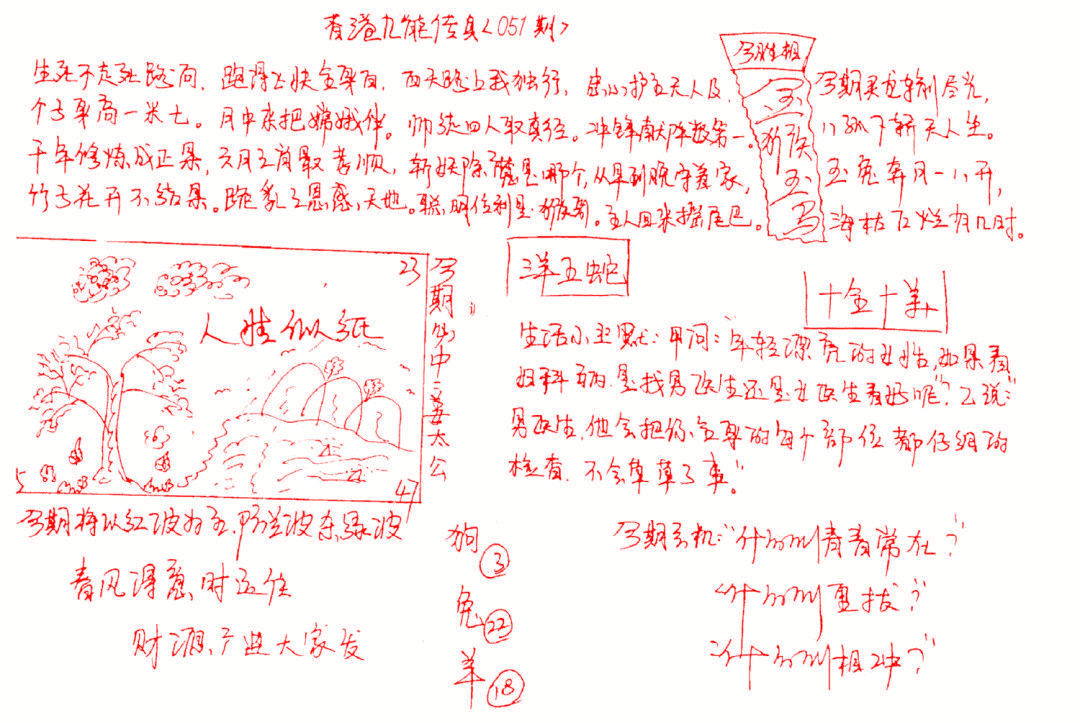 香港九龍传真〈051期〉
生死不走死路向. 跑得止快全身白. 西天路上我独行, 忠心护主无人及.
个子身高一米七。月中亲把嫦娥伴。师徒四人取真经。冲锋献阵数第一。
千年修炼成正果, 六月三肖最苦顺, 斩妖除魔是哪个, 从早到晚守着家,
竹子花开不结果。跪乳之恩感天地。聪明伶利是猴哥。主人回来摇尾巴。
今期生肖相
玉
猴
玉
马
今期
玉兔奔月一八开,
海枯石烂有几时。
23
人性似纸
5
47
今期必中三姜太公
三羊五蛇
十全十美
生活小主黙: 甲问:"年轻漂亮的女性, 如果看
妇科病. 是找男医生还是女医生看好呢". 乙说:"
男医生, 他会把你全身的每个部位都仔细的
检查. 不会草草了事。"
今期将以红波为主. 防兰波杀绿波
春风得意时运佳
财源广进大家发
狗 ③
兔 ㉒
羊 ⑱
今期玄机:"什么门青春常在?"
"什么门更拔?"
"什么门相冲?"